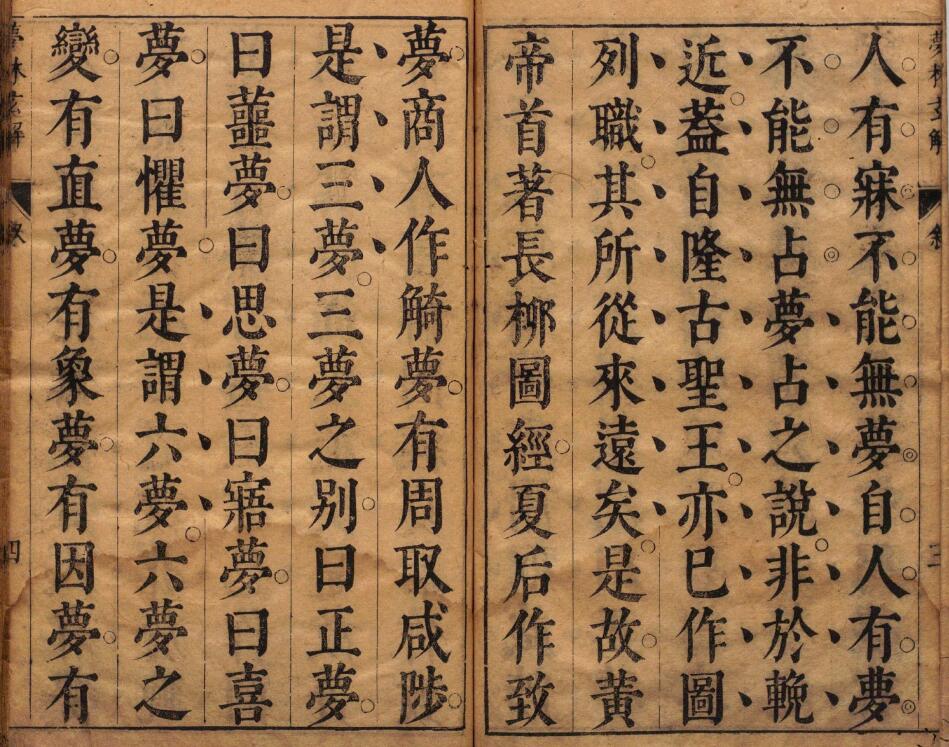 夢林玄解
敘
三
人有寐不能無夢自人有夢
不能無占夢占之說非於輓
近蓋自隆古聖王亦已作圖
列職其所從來遠矣是故黃
帝首著長栁圖經夏后作致
夢商人作觭夢有周取咸陟
是謂三夢三夢之別曰正夢
曰噩夢曰思夢曰寤夢曰喜
夢曰懼夢是謂六夢六夢之
變有直夢有象夢有因夢有
夢林玄解
四